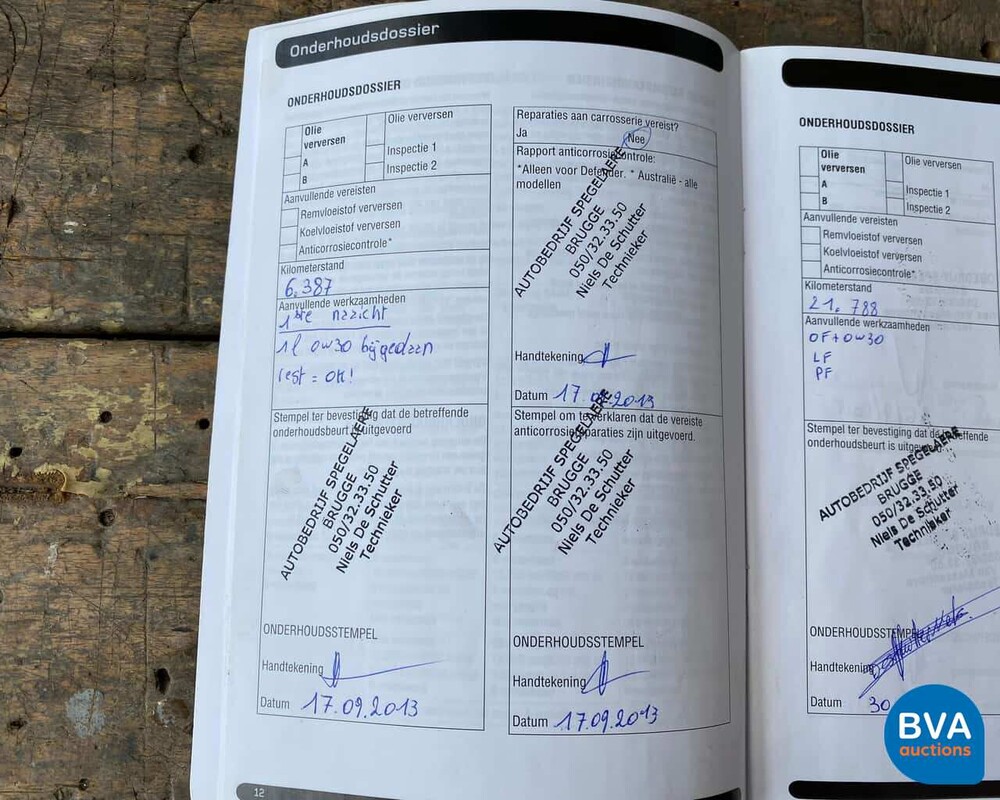 Onderhoudsdossier
ONDERHOUDSDOSSIER
Olie verversen
A
B
Olie verversen
Inspectie 1
Inspectie 2
Aanvullende vereisten
Remvloeistof verversen
Koelvloeistof verversen
Anticorrosiecontrole*
Kilometerstand
6.387
Aanvullende werkzaamheden
1ste nazicht
1l 0w30 bijgedaan
rest = OK!
Stempel ter bevestiging dat de betreffende
onderhoudsbeurt is uitgevoerd
AUTOBEDRIJF SPEGELAERE
BRUGGE
050/32.33.50
Niels De Schutter
Technieker
ONDERHOUDSSTEMPEL
Handtekening
Datum 17.09.2013
Reparaties aan carrosserie vereist?
Ja Nee
Rapport anticorrosiecontrole:
*Alleen voor Defender. * Australië - alle
modellen
AUTOBEDRIJF SPEGELAERE
BRUGGE
050/32.33.50
Niels De Schutter
Technieker
Handtekening
Datum 17.09.2013
Stempel om te verklaren dat de vereiste
anticorrosiereparaties zijn uitgevoerd.
AUTOBEDRIJF SPEGELAERE
BRUGGE
050/32.33.50
Niels De Schutter
Technieker
ONDERHOUDSSTEMPEL
Handtekening
Datum 17.09.2013
12
ONDERHOUDSDOSSIER
Olie verversen
A
B
Olie verversen
Inspectie 1
Inspectie 2
Aanvullende vereisten
Remvloeistof verversen
Koelvloeistof verversen
Anticorrosiecontrole*
Kilometerstand
21.788
Aanvullende werkzaamheden
OF + 0w30
LF
PF
Stempel ter bevestiging dat de betreffende
onderhoudsbeurt is uitgevoerd
AUTOBEDRIJF SPEGELAERE
BRUGGE
050/32.33.50
Niels De Schutter
Technieker
ONDERHOUDSSTEMPEL
Handtekening
Datum 30
BVA
auctions